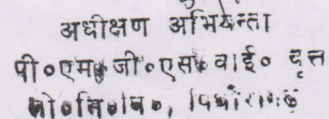 अधीक्षण अभियन्ता
पी०एम०जी०एस०वाई० वृत्त
लो०नि०वि०, पिथौरागढ़